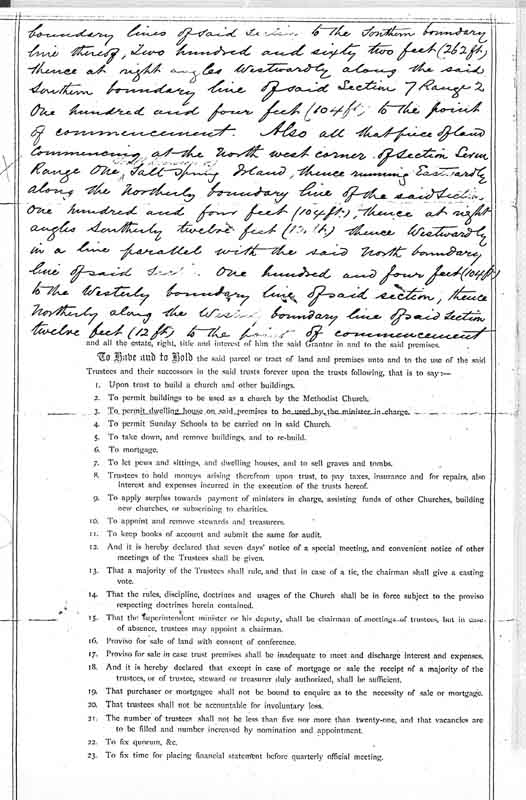 boundary lines of said Section to the Southern boundary
line thereof, Two hundred and sixty two feet (262 ft)
thence at right angles Westwardly along the said
Southern boundary line of said Section 7 Range 2
One hundred and four feet (104 ft) to the point
of commencement. Also all that piece of land
commencing at the North west corner of Section Seven
Range One, Salt Spring Island, thence running Eastwardly
along the Northerly boundary line of the said Section
One hundred and four feet (104 ft), thence at right
angles Southerly twelve feet (12 ft) thence Westwardly
in a line parallel with the said North boundary
line of said One hundred and four feet (104 ft)
to the Westerly boundary line of said section, thence
Northerly along the boundary line of said Section
twelve feet (12 ft) to the point of commencement
and all the estate, right, title and interest of him the said Grantor in and to the said premises.
To Have and to Hold the said parcel or tract of land and premises unto and to the use of the said
Trustees and their successors in the said trusts forever upon the trusts following, that is to say:—
1. Upon trust to build a church and other buildings.
2. To permit buildings to be used as a church by the Methodist Church.
3. To permit dwelling house on said premises to be used by the minister in charge.
4. To permit Sunday Schools to be carried on in said Church.
5. To take down, and remove buildings, and to re-build.
6. To mortgage.
7. To let pews and sittings, and dwelling houses, and to sell graves and tombs.
8. Trustees to hold moneys arising therefrom upon trust, to pay taxes, insurance and for repairs, also
interest and expenses incurred in the execution of the trusts hereof.
9. To apply surplus towards payment of ministers in charge, assisting funds of other Churches, building
new churches, or subscribing to charities.
10. To appoint and remove stewards and treasurers.
11. To keep books of account and submit the same for audit.
12. And it is hereby declared that seven days' notice of a special meeting, and convenient notice of other
meetings of the Trustees shall be given.
13. That a majority of the Trustees shall rule, and that in case of a tie, the chairman shall give a casting
vote.
14. That the rules, discipline, doctrines and usages of the Church shall be in force subject to the proviso
respecting doctrines herein contained.
15. That the Superintendent minister or his deputy, shall be chairman of meetings of trustees, but in case
of absence, trustees may appoint a chairman.
16. Proviso for sale of land with consent of conference.
17. Proviso for sale in case trust premises shall be inadequate to meet and discharge interest and expenses.
18. And it is hereby declared that except in case of mortgage or sale the receipt of a majority of the
trustees, or of trustee, steward or treasurer duly authorized, shall be sufficient.
19. That purchaser or mortgagee shall not be bound to enquire as to the necessity of sale or mortgage.
20. That trustees shall not be accountable for involuntary loss.
21. The number of trustees shall not be less than five nor more than twenty-one, and that vacancies are
to be filled and number increased by nomination and appointment.
22. To fix quorum, &c.
23. To fix time for placing financial statement before quarterly official meeting.